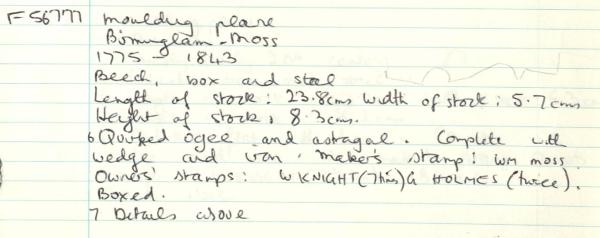 F56777 moulding plane
Birmingham - Moss
1775 - 1843
Beech, box and steel
Length of stock: 23.8cms width of stock: 5.7cms
Height of stock: 8.3cms.
6 Quirked ogee and astragal. Complete with
wedge and iron. Maker's stamp: WM MOSS.
Owners' stamps: W KNIGHT (7 times) G HOLMES (twice).
Boxed.
7 Details above